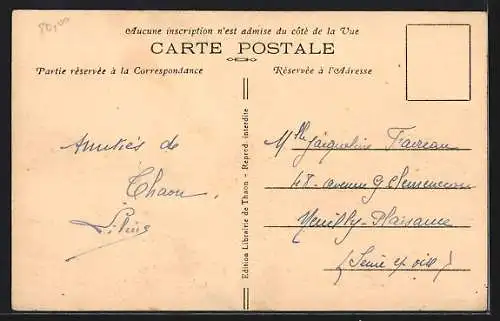 50,00
Aucune inscription n'est admise du côté de la Vue
CARTE POSTALE
Partie réservée à la Correspondance
Réservée à l'Adresse
Amitiés de
Thaon.
Edition Librairie de Thaon - Reprod. interdite
Mlle Jacqueline
48 - avenue G Clemenceau
Neuilly-Plaisance
(Seine et Oise)